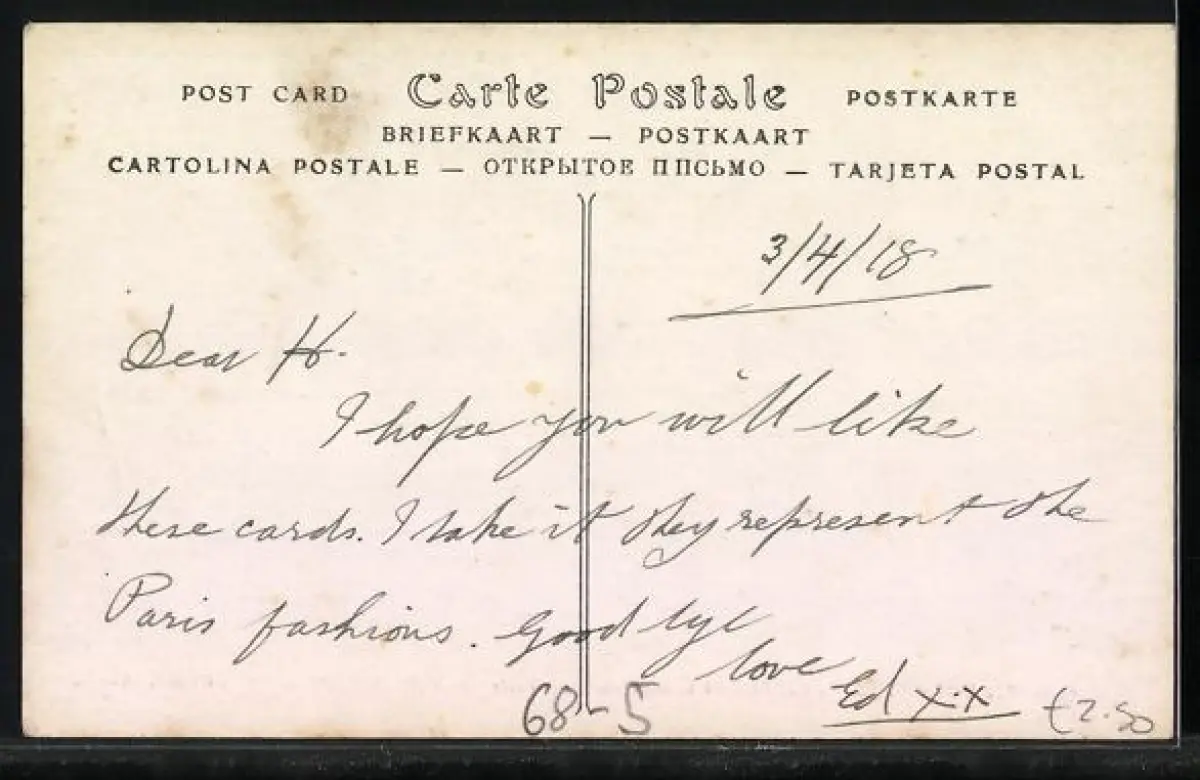 POST CARD Carte Postale POSTKARTE
BRIEFKAART — POSTKAART
CARTOLINA POSTALE — ОТКРЫТОЕ ПИСЬМО — TARJETA POSTAL
3/4/18
Dear H.
I hope you will like
these cards. I take it they represent the
Paris fashions. Good bye
love
Ed x.x
68-5
£2.50